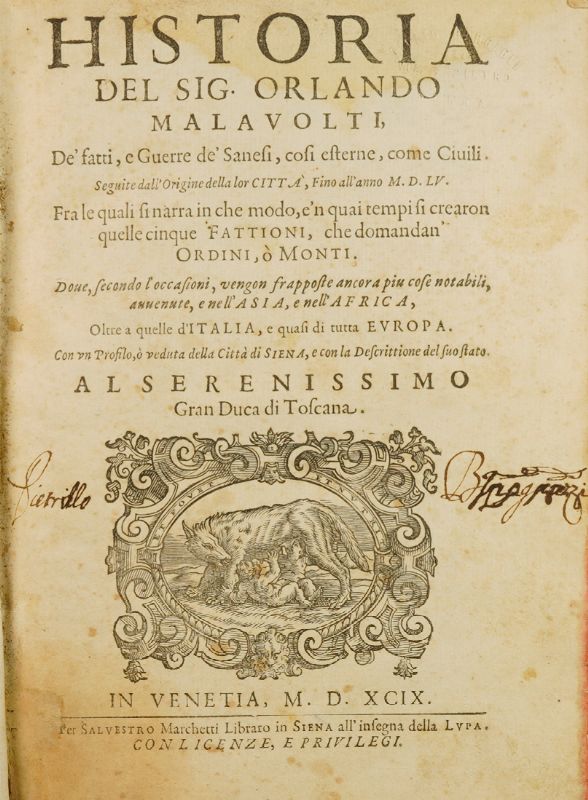 HISTORIA
DEL SIG. ORLANDO
MALAVOLTI,
De' fatti, e Guerre de' Sanesi, cosi esterne, come Ciuili.
Seguite dall'Origine della lor CITTA', Fino all'anno M. D. LV.
Fra le quali si narra in che modo, e'n quai tempi si crearon
quelle cinque FATTIONI, che domandan'
ORDINI, ò MONTI.
Doue, secondo l'occasioni, vengon frapposte ancora piu cose notabili,
auuenute, e nell'ASIA, e nell'AFRICA,
Oltre a quelle d'ITALIA, e quasi di tutta EVROPA.
Con vn Profilo, ò veduta della Città di SIENA, e con la Descrittione del suo stato.
AL SERENISSIMO
Gran Duca di Toscana.
Pietrillo
IN VENETIA, M. D. XCIX.
Per SALVESTRO Marchetti Libraro in SIENA all'insegna della LVPA.
CON LICENZE, E PRIVILEGI.